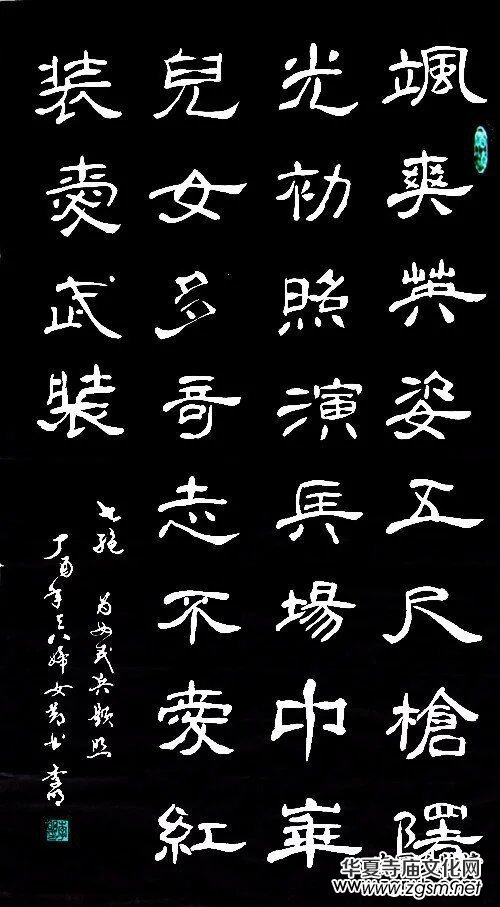 颯爽英姿五尺槍曙
光初照演兵場中華
兒女多奇志不愛紅
装愛武裝
七绝 为女民兵題照
丁酉年三八婦女节书
华夏寺庙文化网
www.zgsm.net